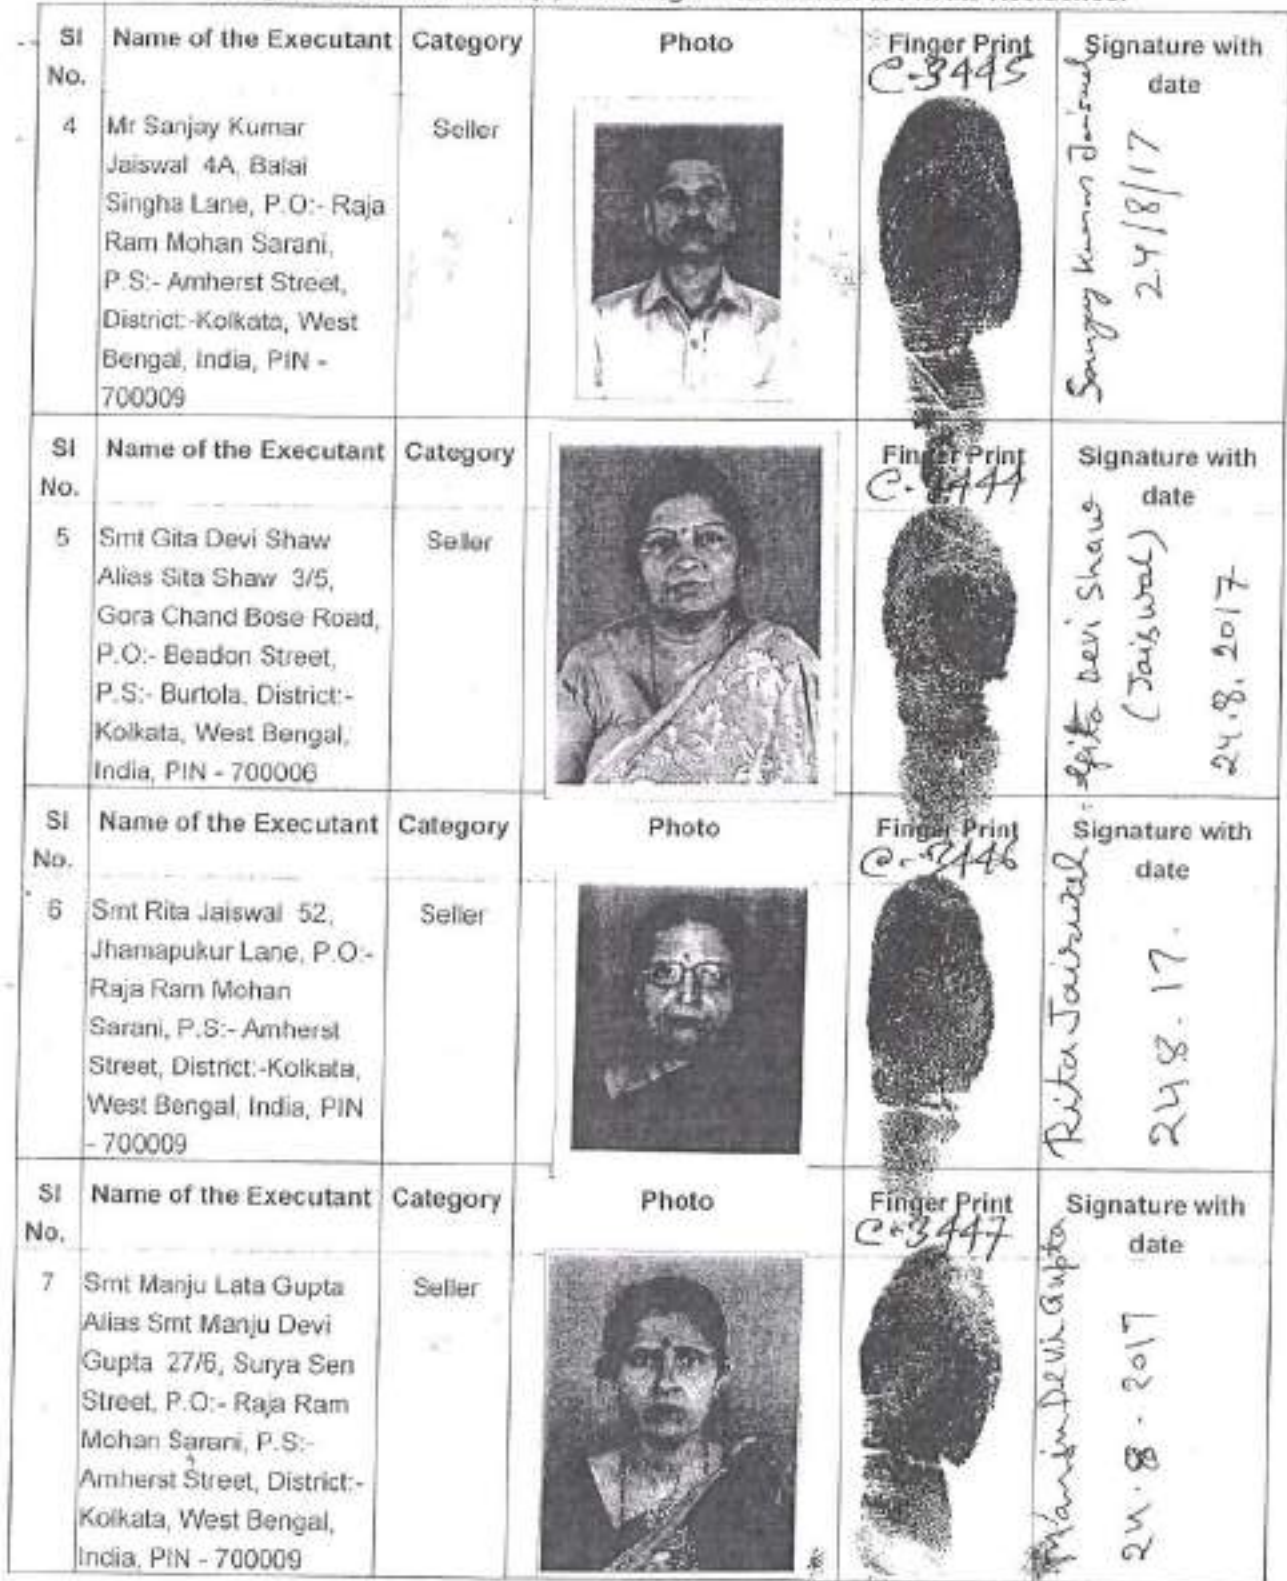 Sl No.
Name of the Executant
Category
Photo
Finger Print
Signature with date
4
Mr Sanjay Kumar
Jaiswal 4A, Balai
Singha Lane, P.O:- Raja
Ram Mohan Sarani,
P.S:- Amherst Street,
District:-Kolkata, West
Bengal, India, PIN -
700009
Seller
C-3445
Sanjay Kumar Jaiswal
24/8/17
Sl No.
Name of the Executant
Category
Finger Print
Signature with date
5
Smt Gita Devi Shaw
Alias Sita Shaw 3/5,
Gora Chand Bose Road,
P.O:- Beadon Street,
P.S:- Burtola, District:-
Kolkata, West Bengal,
India, PIN - 700006
Seller
Gita Devi Shaw
(Jaiswal)
24.8.2017
Sl No.
Name of the Executant
Category
Photo
Finger Print
Signature with date
6
Smt Rita Jaiswal 52,
Jhamapukur Lane, P.O:-
Raja Ram Mohan
Sarani, P.S:- Amherst
Street, District:-Kolkata,
West Bengal, India, PIN
- 700009
Seller
Rita Jaiswal
24.8.17.
Sl No.
Name of the Executant
Category
Photo
Finger Print
Signature with date
7
Smt Manju Lata Gupta
Alias Smt Manju Devi
Gupta 27/6, Surya Sen
Street, P.O:- Raja Ram
Mohan Sarani, P.S:-
Amherst Street, District:-
Kolkata, West Bengal,
India, PIN - 700009
Seller
C-3447
Manju Devi Gupta
24.8.2017